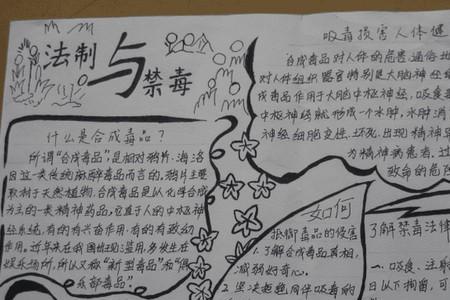 法制与禁毒
什么是合成毒品？
所谓“合成毒品”，是相对鸦片、海洛
因这一类传统麻醉毒品而言的，鸦片主要
取材于天然植物，合成毒品是以化学合成
为主的一类精神药品，它直于人的中枢神
经系统，有的有兴奋作用，有的有致幻
作用。近年来在我国出现滥用，多发生在
娱乐场所，所以又称“新型毒品”和“俱
乐部毒品”。
吸毒损害人体健
合成毒品对人体的危害通俗地
对人体组织器官特别是大脑神经细
成毒品作用于大脑中枢神经，吸食
中枢神经就形成一个水肿，水肿消
神经细胞变性、坏死，出现精神
为精神病患者，过
致命的危险
如何
抵御毒品的侵害
1、了解合成毒品真相，
减弱好奇心。
2、坚决拒绝同伴吸毒的
了解禁毒法律
一、吸食、注射
日以下拘留，可